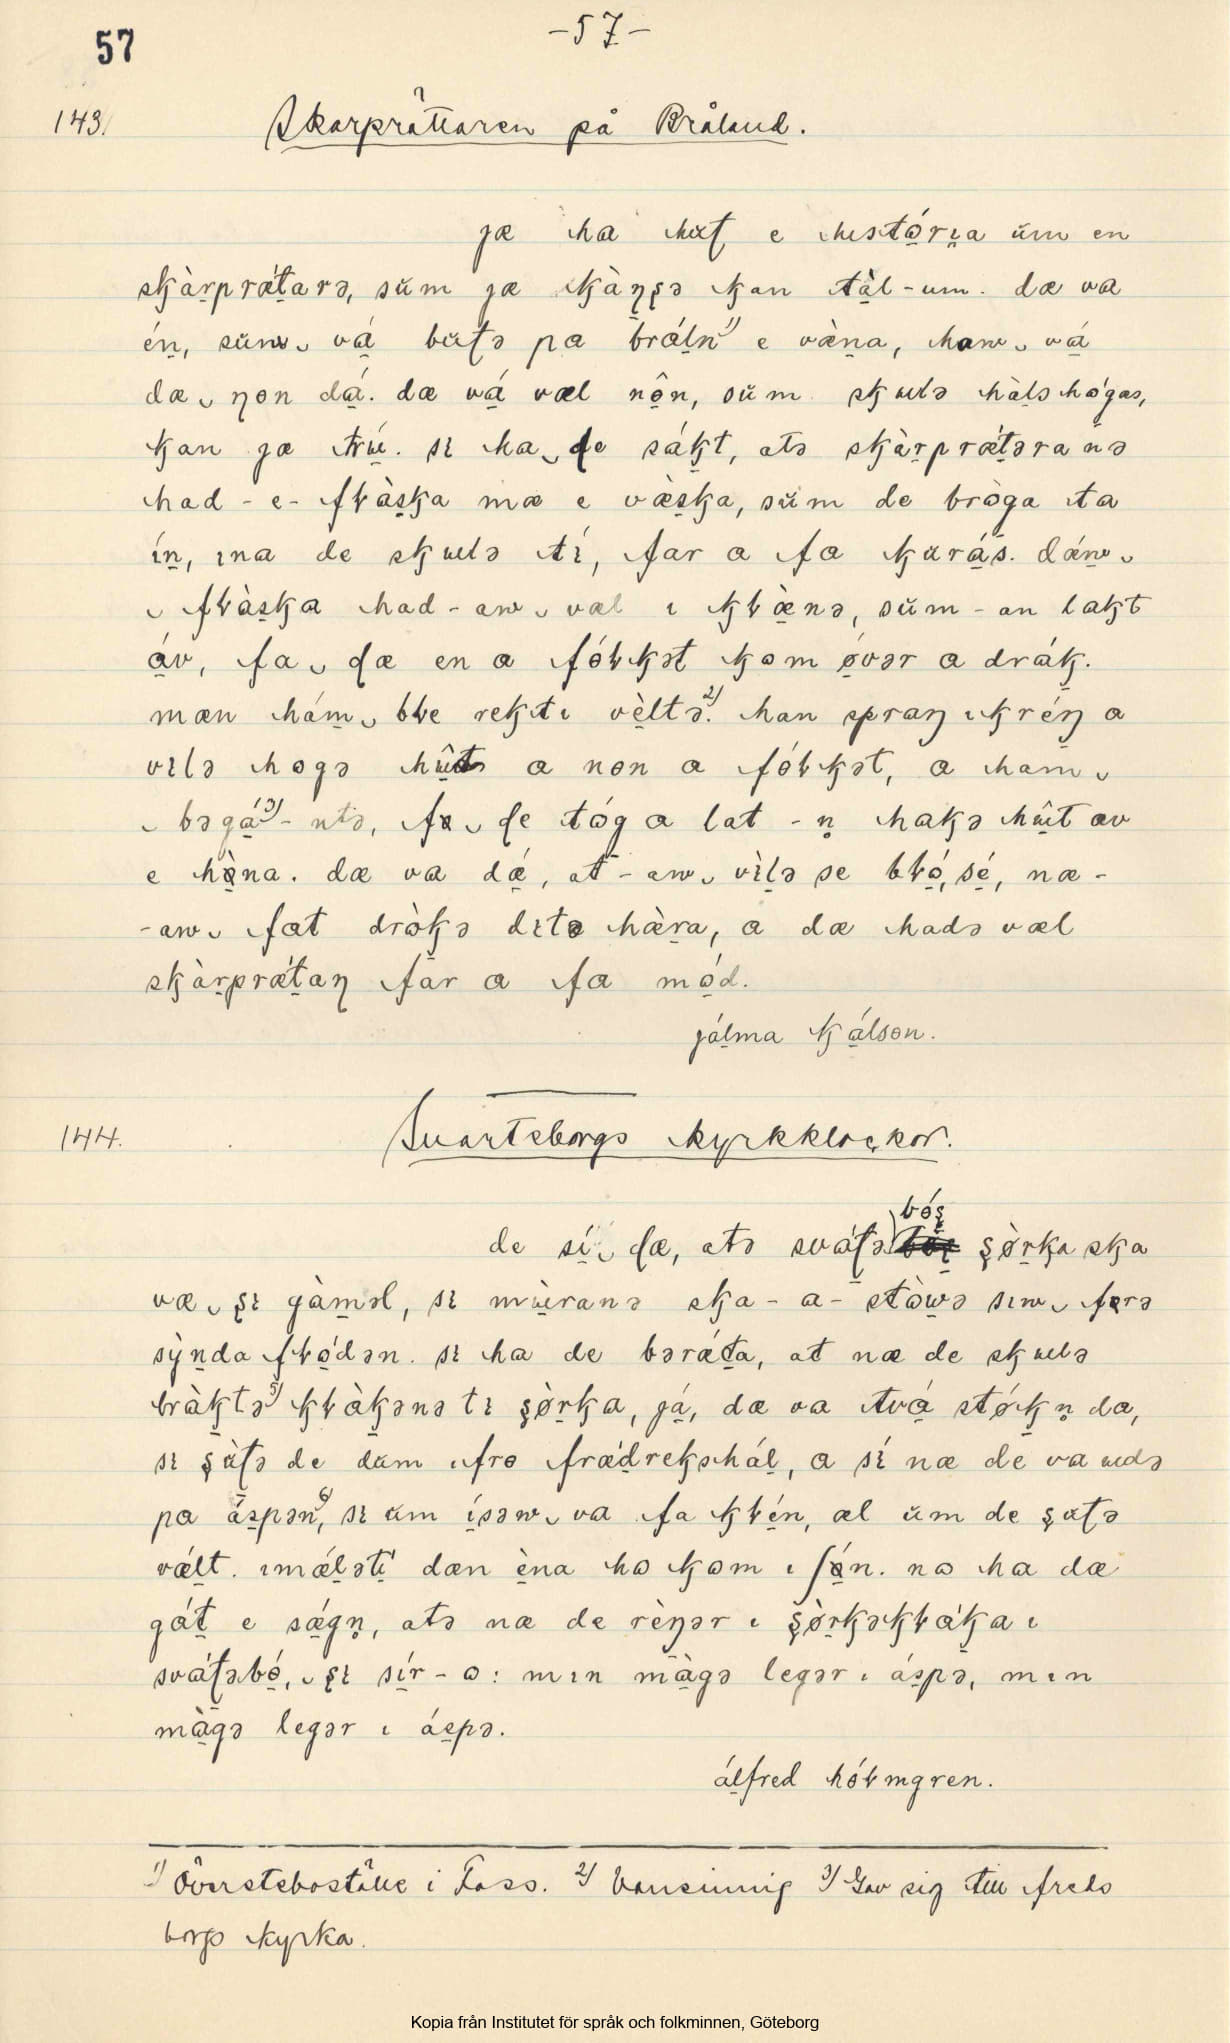 57
-57-
143. Skarprättaren på Bråland.
jæ ha hɯʈ e história ŭm en
skàrprǽtarə, sŭm jæ kàŋʂə kan tàl-um. dæ va
én, sŭm vá bŭʈə pa bráln¹⁾ e vǽna, haw vá
dæ ŋon dá. dæ vá væl nôn, sŭm skulə hàlshógas,
kan jæ trú. sı ha de sákt, atə skàrprǽtərans
had-e-flàska mæ e vǽska, sŭm de bròga ta
ín, ına de skulə tí, far a fa kurás. dǽnw
flàska had-aw væl ı kɽǽnə, sŭm-an lakt
áv, fa dæ en a fóɽkət kom óvər a drák.
mæn hám bɽe rekti vèltə.²⁾ han spraŋ ıkréŋ a
vılə hogə hût a non a fóɽkət, a ham
bəgá³⁾-ntə, fa de tóg a lat-n hakə hût av
e hǿna. dæ va dǽ, at-aw vìlə se bɽó, sé, næ-
-aw fat dròkə ditə hǽra, a dæ hadə væl
skàrprǽtaŋ far a fa mód.
jálma kálson.
144. Svarteborgs kyrkklockor.
bóʂ
de sí dæ, atə sváʈə ʂǿrka ska
væ ʂı gàməl, sı mùranə ska-a-stòwə sıw førə
sýnda flódən. sı ha de bərǽta, at næ de skulə
bràktə⁵⁾ kɽàkənə tı ʂǿrka, já, dæ va tvá stǿkn da,
sı ʂùʈə de dŭm fro frǽdrekshál, a sí næ de va udə
pa áspən⁶⁾, sı ŭm ísəw va fa kɽén, æl ŭm de ʂuʈə
vǽlt. ımǽlətí dæn èna ho kom ı ʃǿn. no ha dæ
gát e sǽgn, atə næ de rèŋər ı ʂǿrkəkɽáka ı
sváʈəbó, ʂı sír-o: mın màgə legər ı áspə, mın
màgə legər ı áspə.
álfred hóɽmgren.
¹⁾ Översteboställe i Foss. ²⁾ Vansinnig ³⁾ Gav sig till Freds
borgs kyrka.
Kopia från Institutet för språk och folkminnen, Göteborg